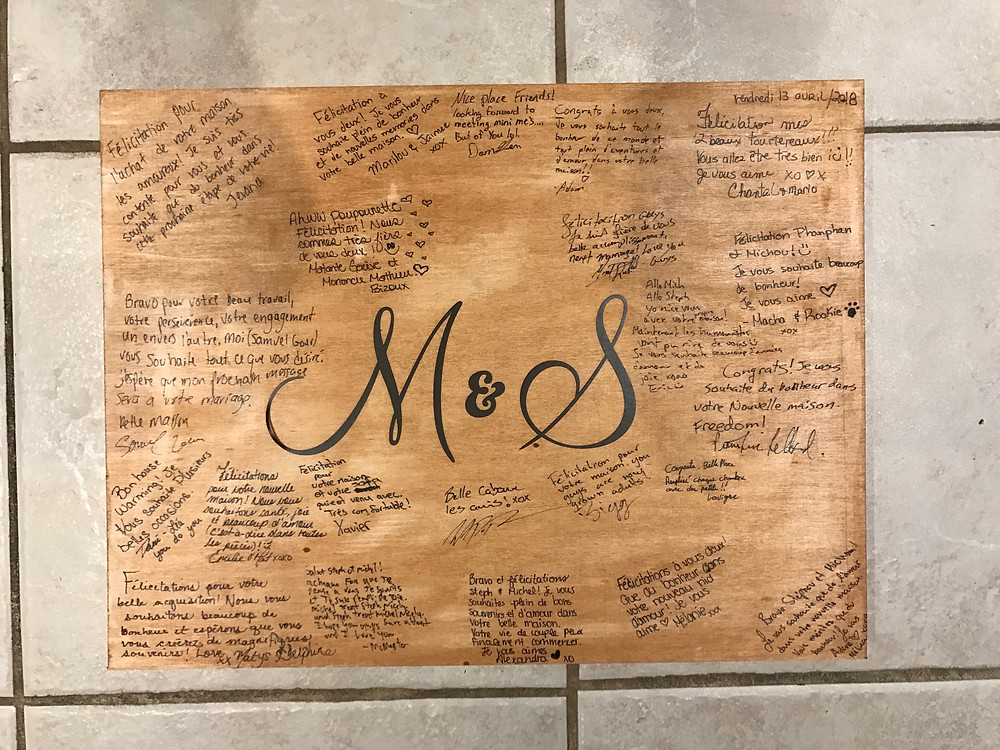 Félicitation pour
l'achat de votre maison
les amoureux! Je suis très
contente pour vous et vous
souhaite que du bonheur dans
cette prochaine étape de votre vie!
Jevana
Félicitation à
vous deux! Je vous
souhaite plein de bonheur
et de nouvelles memories dans
votre belle maison.
Marilou & Samuel
xox
Nice place Friends!
looking forward to
meeting mini mes....
But of You lol.
Congrats à vous deux,
Je vous souhaite tout le
bonheur du monde et
tout plein d'aventures et
d'amour dans votre belle
maison!!
Adam
vendredi 13 avril/2018
Félicitation mes
2 beaux tourtereaux!!!!
Vous allez être très bien ici!!
Je vous aime xo ♡ x
Chantal & mario
Ahww Poupounette
Félicitation! Nous
sommes très fière
de vous deux!
Matante Geneve et
Mononcle Mathieu
Bizoux
Félicitation Guys
Je suis fière de vous
belle accomplissements
next mymage! Love you
Guys
Félicitation Phanphan
et Michou!
Je vous souhaite beaucoup
de bonheur!
Je vous aime ♡
- Macha & Rookie
xox
Allo Mich
Allo Steph
Yo nice
avec votre maison!
Maintenant les
vont pu rire de vous
Je vous souhaite beaucoup d'années
d'amour et de
joie xoxo
Bravo pour votre beau travail,
votre perseverence, votre engagement
un envers l'autre. Moi (Samuel Goar)
vous souhaite tout ce que vous désire.
J'espère que mon prochain message
sera à votre mariage.
Belle Maison
M & S
Congrats! Je vous
souhaite du bonheur dans
votre Nouvelle maison.
Freedom!
Bon house
warming. Je
vous souhaite plusieurs
belles occasions.
you do you
Félicitations
pour votre nouvelle
maison! Nous vous
souhaitons santé, joie
et beaucoup d'amour
(c'est-à-dire dans toutes
les pièces)!
Emilie & Pat xoxo
Félicitation
pour
votre maison
et votre
qui est venu avec.
Très confortable!
Xavier
Belle Cabane
les cans! xox
Félicitation pour
votre maison, you
guys are now
grown adults!
Belle Place
chaque chambre
avec du
Félicitations pour votre
belle acquisition! Nous vous
souhaitons beaucoup de
bonheur et espérons que vous
vous créerez de magnifiques
souvenirs! Love, Katys & Delphine
xx
Salut Steph et Mich!
I hope you guys have a blast
and I love you
Bravo et félicitations
Steph & Michel! Je vous
souhaites plein de bons
souvenirs et d'amour dans
votre belle maison.
Votre vie de couple peux
finalement commencer.
Je vous aimes
Alexandra ♥ xo
Félicitations à vous deux!
Que du bonheur dans
votre nouveau nid
d'amour. Je vous
aime ♡ Mélanie xx
Bravo Stephany et Michael!
Je vous souhaite que de l'amour
dans votre nouvelle maison